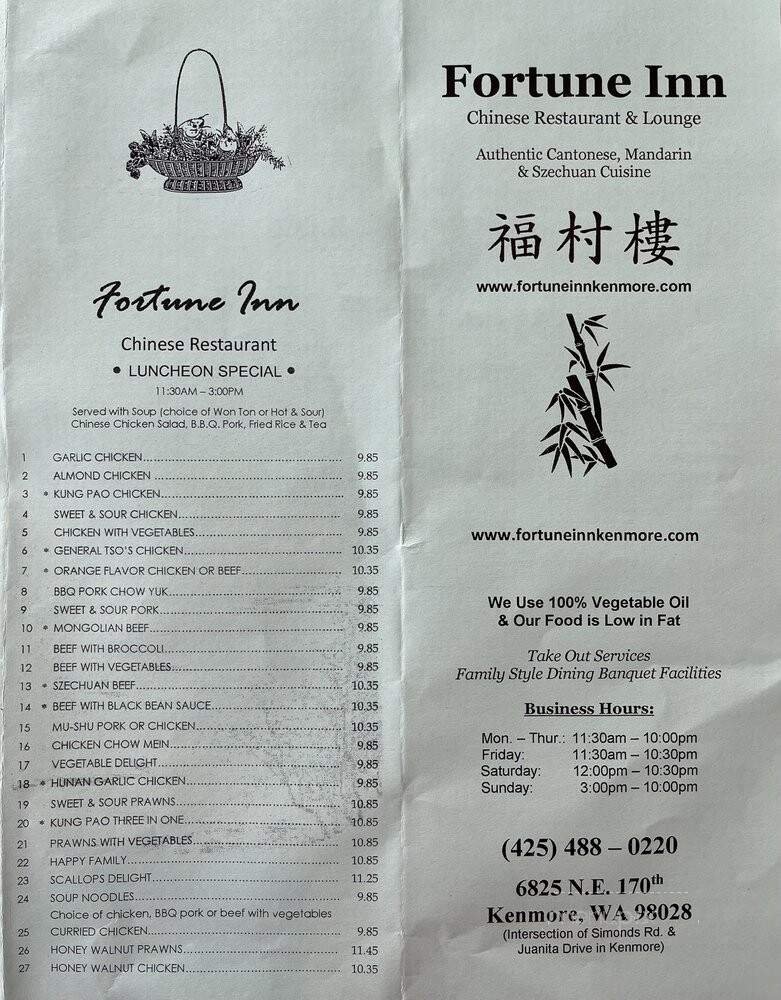 Fortune Inn
Chinese Restaurant
• LUNCHEON SPECIAL •
11:30AM – 3:00PM
Served with Soup (choice of Won Ton or Hot & Sour)
Chinese Chicken Salad, B.B.Q. Pork, Fried Rice & Tea
1 GARLIC CHICKEN 9.85
2 ALMOND CHICKEN 9.85
3 * KUNG PAO CHICKEN 9.85
4 SWEET & SOUR CHICKEN 9.85
5 CHICKEN WITH VEGETABLES 9.85
6 * GENERAL TSO'S CHICKEN 10.35
7 * ORANGE FLAVOR CHICKEN OR BEEF 10.35
8 BBQ PORK CHOW YUK 9.85
9 SWEET & SOUR PORK 9.85
10 * MONGOLIAN BEEF 9.85
11 BEEF WITH BROCCOLI 9.85
12 BEEF WITH VEGETABLES 9.85
13 * SZECHUAN BEEF 10.35
14 * BEEF WITH BLACK BEAN SAUCE 10.35
15 MU-SHU PORK OR CHICKEN 10.35
16 CHICKEN CHOW MEIN 9.85
17 VEGETABLE DELIGHT 9.85
18 * HUNAN GARLIC CHICKEN 9.85
19 SWEET & SOUR PRAWNS 10.85
20 * KUNG PAO THREE IN ONE 10.85
21 PRAWNS WITH VEGETABLES 10.85
22 HAPPY FAMILY 10.85
23 SCALLOPS DELIGHT 11.25
24 SOUP NOODLES 9.85
Choice of chicken, BBQ pork or beef with vegetables
25 CURRIED CHICKEN 9.85
26 HONEY WALNUT PRAWNS 11.45
27 HONEY WALNUT CHICKEN 10.35
Fortune Inn
Chinese Restaurant & Lounge
Authentic Cantonese, Mandarin
& Szechuan Cuisine
福村樓
www.fortuneinnkenmore.com
www.fortuneinnkenmore.com
We Use 100% Vegetable Oil
& Our Food is Low in Fat
Take Out Services
Family Style Dining Banquet Facilities
Business Hours:
Mon. – Thur.: 11:30am – 10:00pm
Friday: 11:30am – 10:30pm
Saturday: 12:00pm – 10:30pm
Sunday: 3:00pm – 10:00pm
(425) 488 – 0220
6825 N.E. 170th
Kenmore, WA 98028
(Intersection of Simonds Rd. &
Juanita Drive in Kenmore)